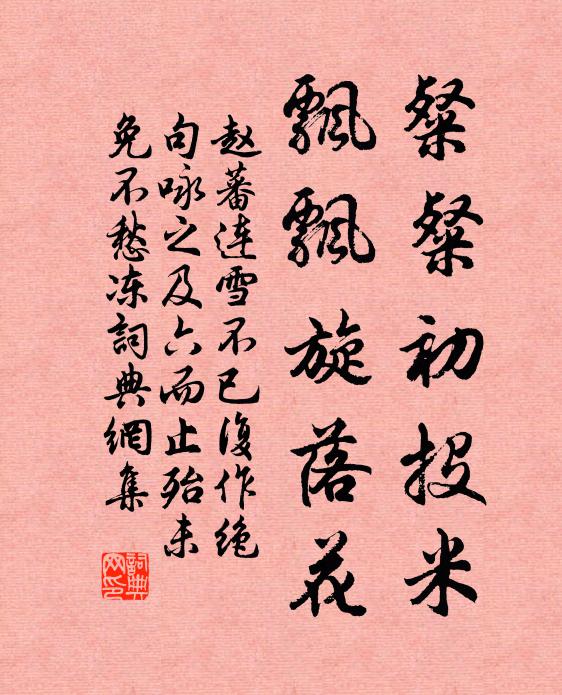 粲粲初投米
飘飘旋落花
赵蕃连雪不已復作绝
句咏之及六而止殆未
免不愁冻詞典網集
詞典网印